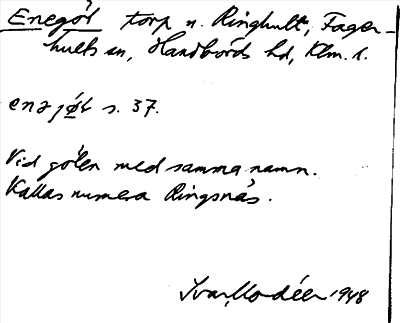 Enegöl torp u. Ringhult, Fager-
hults sn, Handbörds hd, Klm. l.
enəjø̀l s. 37.
Vid gölen med samma namn.
Kallas numera Ringsnäs.
Ivar Modéer 1948